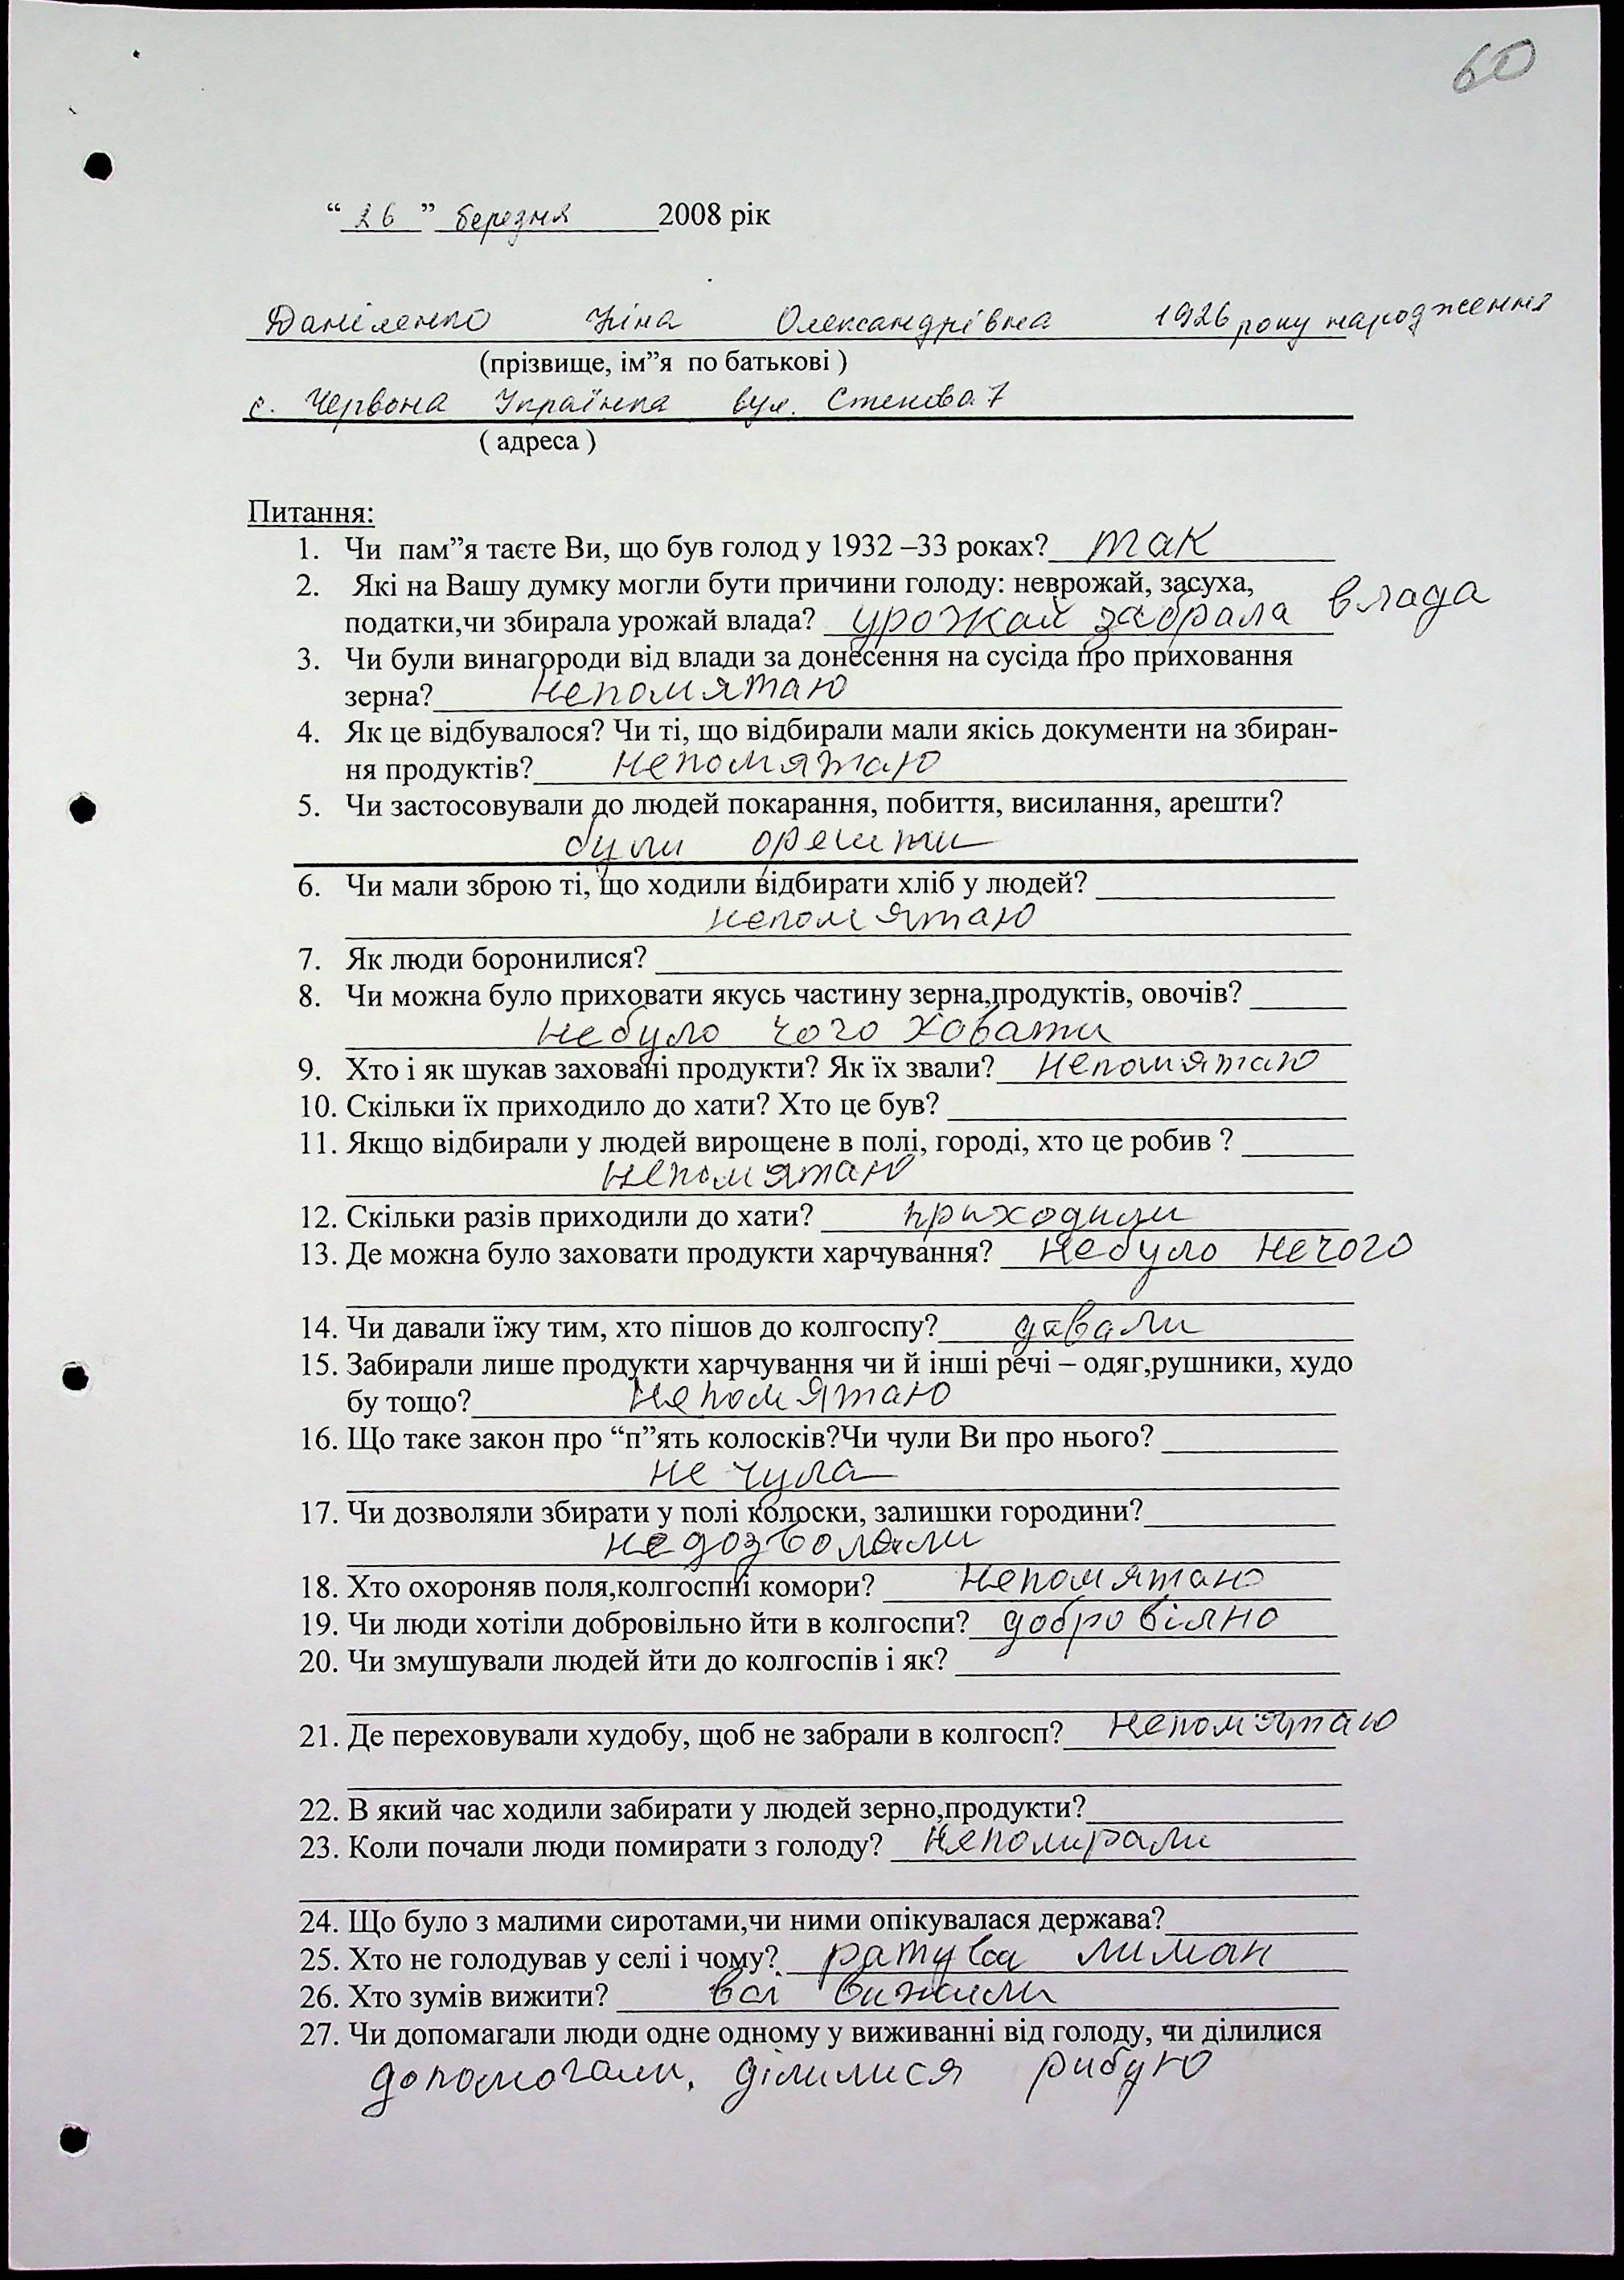 60
“ 26 ” березня 2008 рік
Даніленко Ніна Олександрівна 1926 року народження
(прізвище, ім”я по батькові )
с. Червона Українка вул. Степова 7
( адреса )
Питання:
1. Чи пам”я таєте Ви, що був голод у 1932 –33 роках? так
2. Які на Вашу думку могли бути причини голоду: неврожай, засуха,
податки,чи збирала урожай влада? урожай забрала влада
3. Чи були винагороди від влади за донесення на сусіда про приховання
зерна? непомятаю
4. Як це відбувалося? Чи ті, що відбирали мали якісь документи на збиран-
ня продуктів? непомятаю
5. Чи застосовували до людей покарання, побиття, висилання, арешти?
були орешти
6. Чи мали зброю ті, що ходили відбирати хліб у людей?
непомятаю
7. Як люди боронилися?
8. Чи можна було приховати якусь частину зерна,продуктів, овочів?
небуло чого ховати
9. Хто і як шукав заховані продукти? Як їх звали? непомятаю
10. Скільки їх приходило до хати? Хто це був?
11. Якщо відбирали у людей вирощене в полі, городі, хто це робив ?
непомятаю
12. Скільки разів приходили до хати? приходили
13. Де можна було заховати продукти харчування? небуло нечого
14. Чи давали їжу тим, хто пішов до колгоспу? давали
15. Забирали лише продукти харчування чи й інші речі – одяг,рушники, худо
бу тощо? непомятаю
16. Що таке закон про “п”ять колосків?Чи чули Ви про нього?
не чула
17. Чи дозволяли збирати у полі колоски, залишки городини?
недозволяли
18. Хто охороняв поля,колгоспні комори? непомятаю
19. Чи люди хотіли добровільно йти в колгоспи? добровілно
20. Чи змушували людей йти до колгоспів і як?
21. Де переховували худобу, щоб не забрали в колгосп? непом'ятаю
22. В який час ходили забирати у людей зерно,продукти?
23. Коли почали люди помирати з голоду? непомирали
24. Що було з малими сиротами,чи ними опікувалася держава?
25. Хто не голодував у селі і чому? лиман
26. Хто зумів вижити? всі вижили
27. Чи допомагали люди одне одному у виживанні від голоду, чи ділилися
допомогали, ділилися рибую